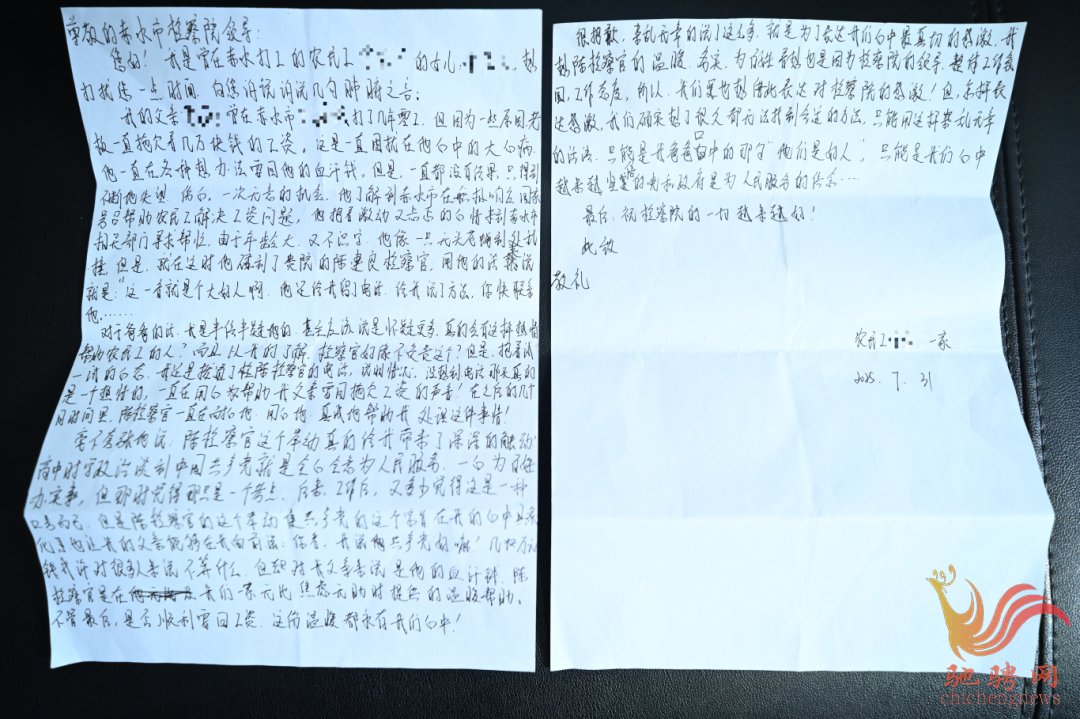 尊敬的赤水市检察院领导:
您好!我是曾在赤水打工的农民工 的女儿: 想
打扰占一点时间,向您们说说几句肺腑之言:
我的父亲 曾在赤水市 打了几年零工,但因为一些原因老
板一直拖欠着几万块钱的工资,这是一直困扰在他心中的大心病,
他一直在各种想办法要回他的血汗钱,但是,一直都没有结果,只得到
不断地失望、伤心,一次无意的机会,他了解到赤水市在积极响应国家
号召帮助农民工解决工资问题,他抱着激动又忐忑的心情来到赤水市
相关部门寻求帮忙,由于年龄大、又不识字,他像一只无头苍蝇到处乱
撞,但是,就在这时他碰到了贵院的陈惠良检察官,用他的话来说
就是:"这一看就是个大好人啊,他还给我留了电话,给我说了方法,你快联系
他……
对于爸爸的话,我是半信半疑地的,甚至应该说是怀疑更多,真的会有这样热情
帮助农民工的人?而且从我的了解,检察官好像不负责这个?但是,抱着试
一试的心态,我还是拨通了检陈检察官的电话,说明情况,没想到电话那头真的
是一个热情的,一直在用心为帮助我父亲要回拖欠工资的声音!在之后的几个
月时间里,陈检察官一直在耐心地、用心地、真诚地帮助我处理这件事情!
毫不夸张地说:陈检察官这个举动真的给我带来了深深的触动!
高中时学政治谈到中国共产党就是全心全意为人民服务,一心为百姓
办实事,但那时觉得那只是一个考点,后来,工作后,又多少觉得这是一种
口号而已,但是陈检察官的这个举动使共产党的这个宗旨在我的心中具象
化了,也让我的父亲能够在我面前说:你看,我说共产党好嘛!几万块
钱或许对很多人来说不算什么,但却对我父亲来说是他的血汗钱,陈
检察官是在我们一家无比焦虑无助时提供的温暖帮助。
不管最后,是否顺利要回工资,这份温暖都永存我们心中!
很抱歉,杂乱无章的说了这么多,就是为了表达我们心中最真切的感激,我
想陈检察官的温暖、务实、为百姓着想也是因为检察院的领导、整体工作氛
围、工作态度,所以,我们更也想借此表达对检察院的感激!但,怎样表
达感激,我们确实想了很久都无法找到合适的方法,只能用这样杂乱无章
的话语,只能是我爸爸口中的那句"他们是好人",只能是我们心中
越来越坚定的党和政府是为人民服务的信念……
最后,祝检察院的一切越来越好!
此致
敬礼
农民工 一家
2025. 7. 31
驰骋网
chichengnews